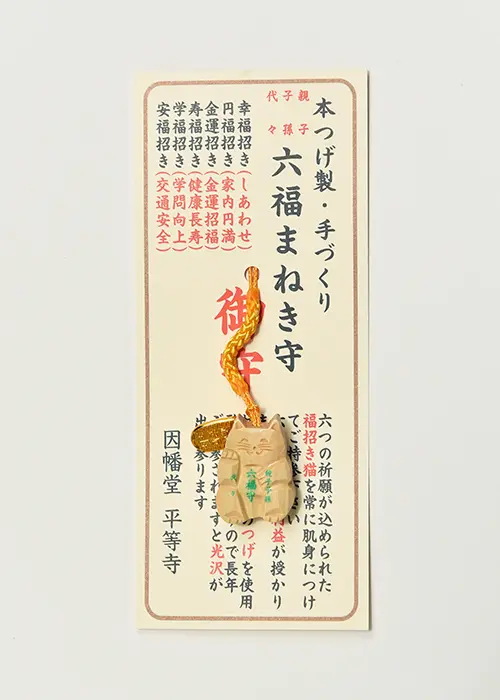 本つげ製・手づくり
親子
子孫
代々
六福まねき守
幸福招き(しあわせ)
円福招き(家内円満)
金運招き(金運招福)
寿福招き(健康長寿)
学福招き(学問向上)
安福招き(交通安全)
御守
六つの祈願が込められた
福招き猫を常に肌身につけ
てご持参
益が授かり
つげを使用
ので長年
参されますと光沢が
出 参ります
因幡堂 平等寺
六福守